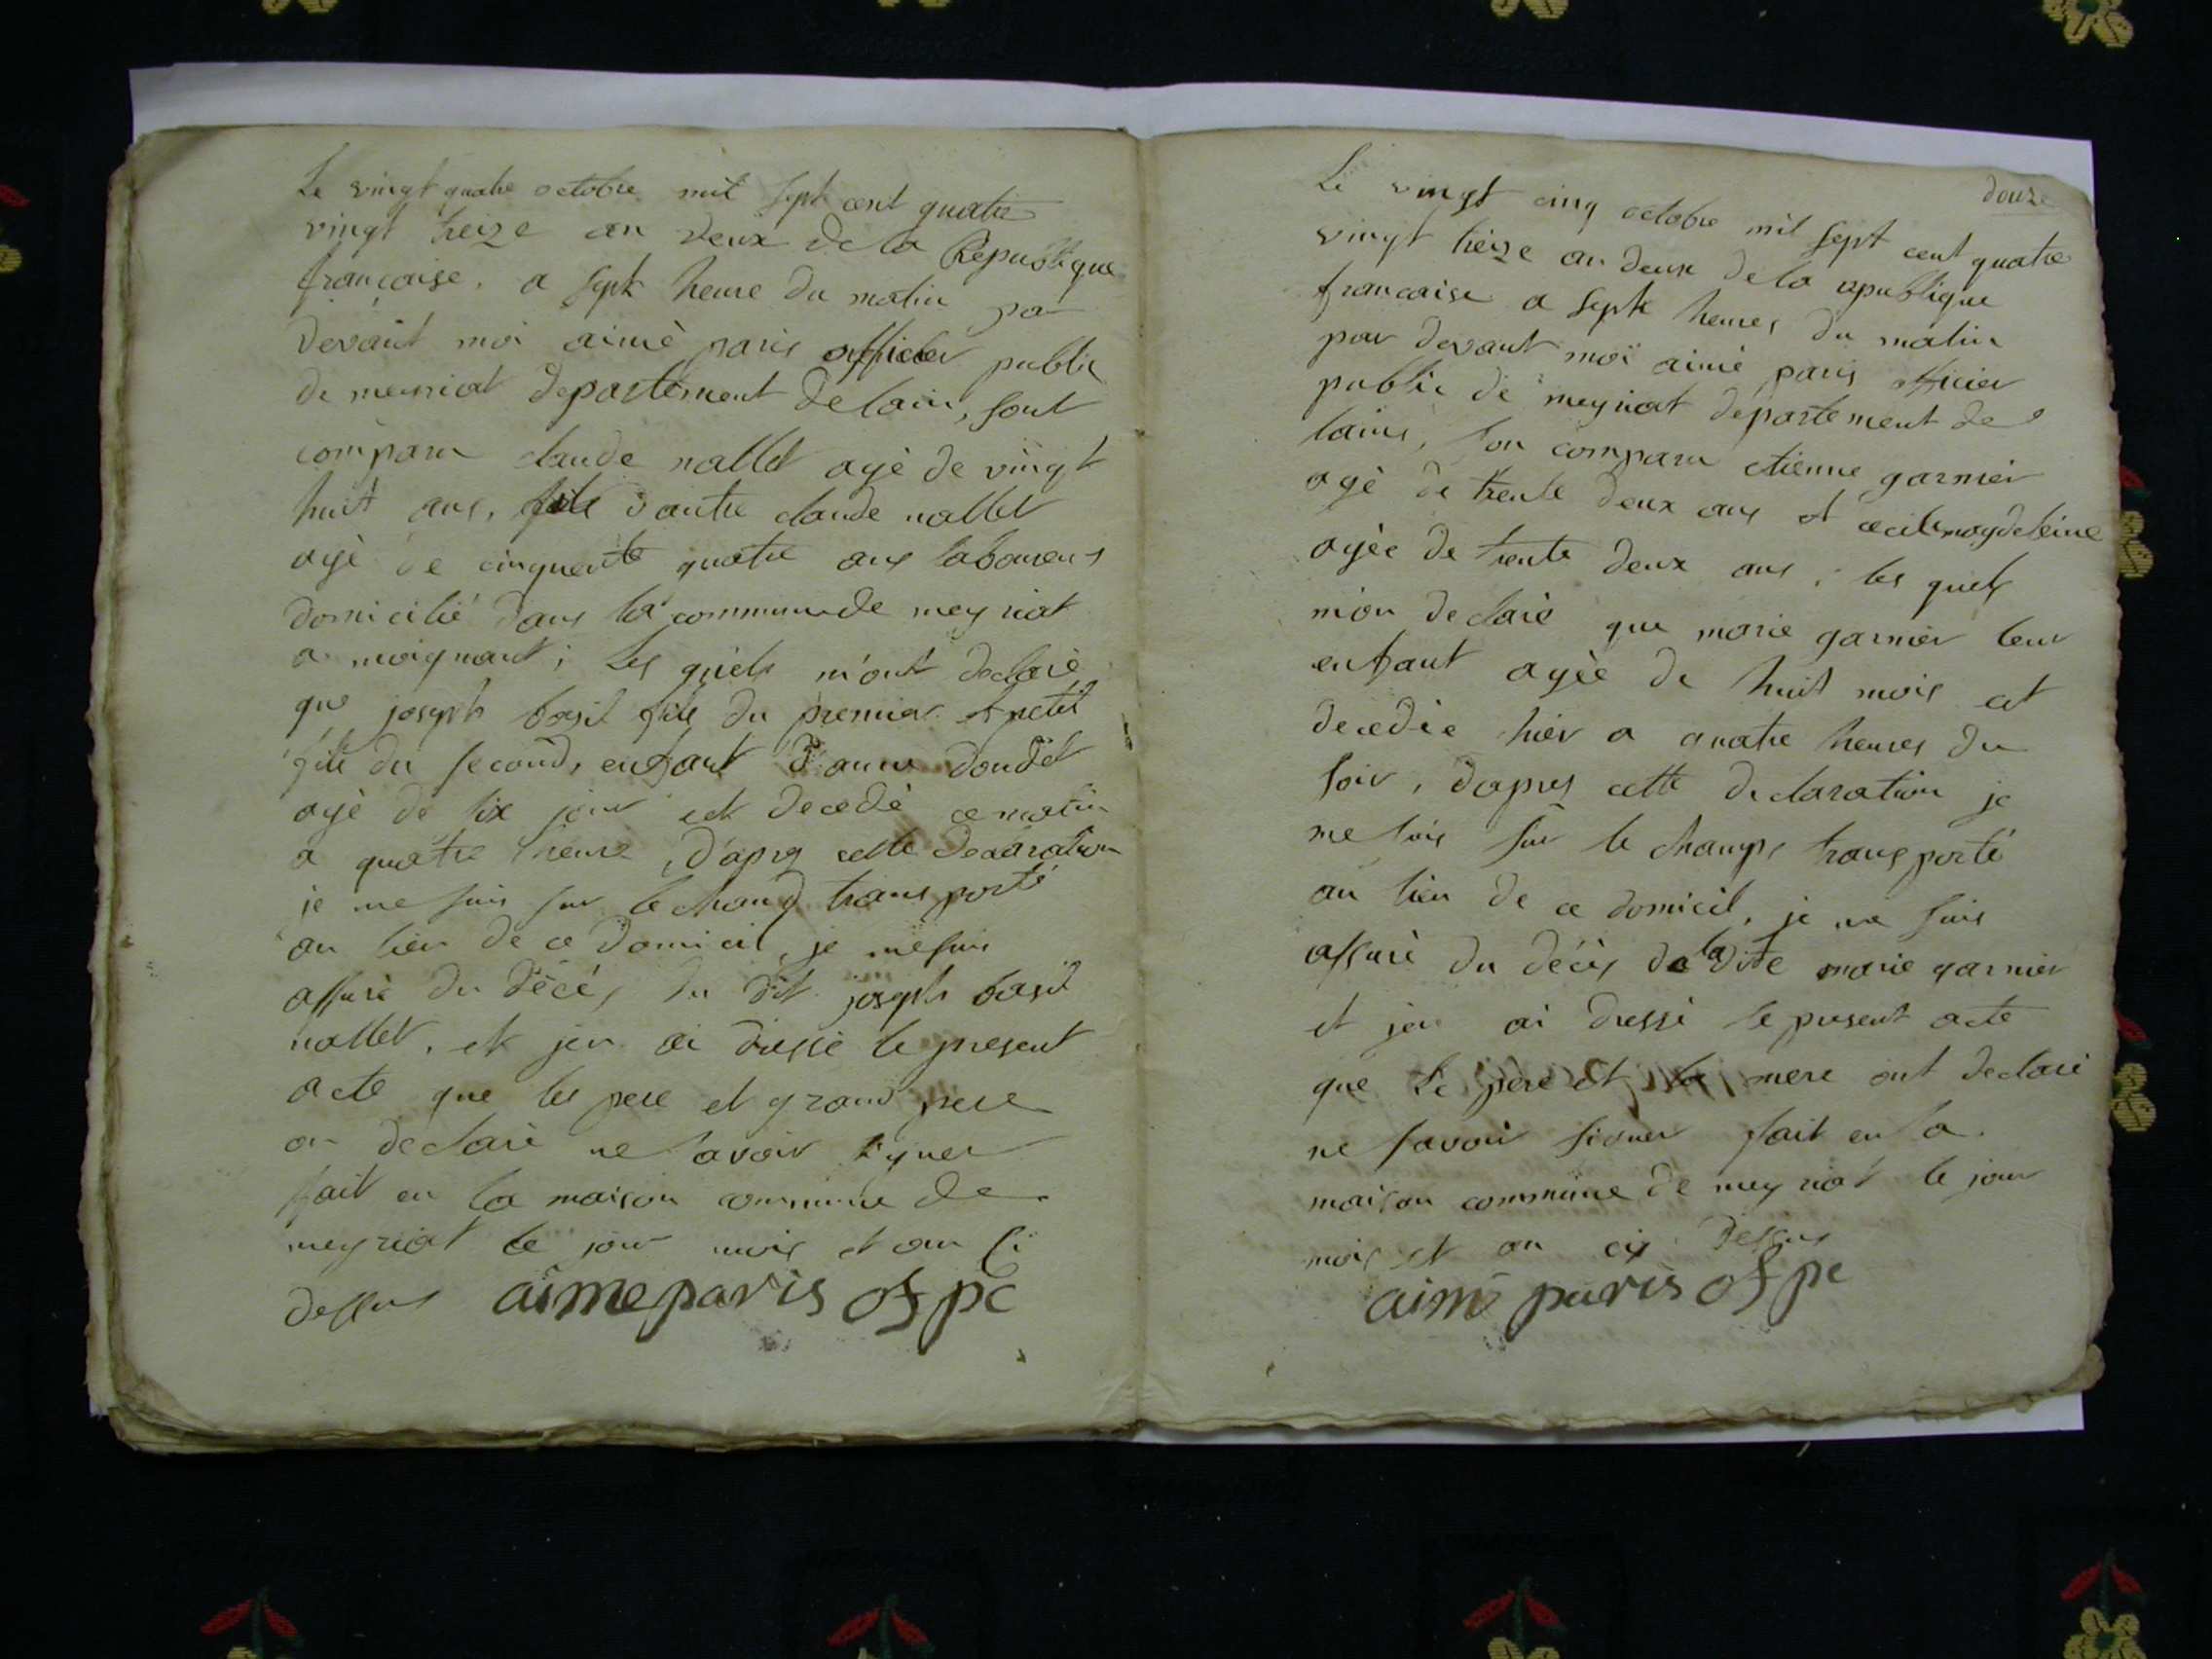 Le vingt quatre octobre mil sept cent quatre
vingt treize an deux de la Republique
francaise, a sept heure du matin par
devant moi aimé paris officier public
de meyriat departement de lain, sont
comparu claude nallet agé de vingt
huit ans, fils d'autre claude nallet
agé de cinquente quatre ans laboureurs
domicilié dans la commune de meyriat
a moignant; les quels m'ont declaré
que joseph basil fils du premier et petit
fils du second, enfant d'anne doudet
agé de six jour est decedé ce matin
a quatre heure, d'apres cette declaration
je me suis sur le champ transporté
au lieu de ce domicil, je me suis
assuré du décés du dit joseph basil
nallet, et jen ai dressé le present
acte que les pere et grand pere
on declaré ne savoir signer
fait en la maison commune de
meyriat le jour mois et an si
dessus aimeparis of pc
douze
Le vingt cinq octobre mil sept cent quatre
vingt treize an deux de la republique
francaise a sept heures du matin
par devant moi aimé paris officier
public de meyriat département de
lains, son comparu etienne garnier
agé de trente deux ans et cecile magdeleine
agée de trente deux ans, les quels
m'on declaré que marie garnier leur
enfant agée de huit mois et
decedée hier a quatre heures du
soir, dapres cette declaration je
me suis sur le champs transporté
au lieu de ce domicil, je me suis
assuré du décés de la dite marie garnier
et jen ai dressé le present acte
que le pere et la mere ont declaré
ne savoir signer fait en la
maison commune de meyriat le jour
mois et an cy dessus
aimé paris of pc